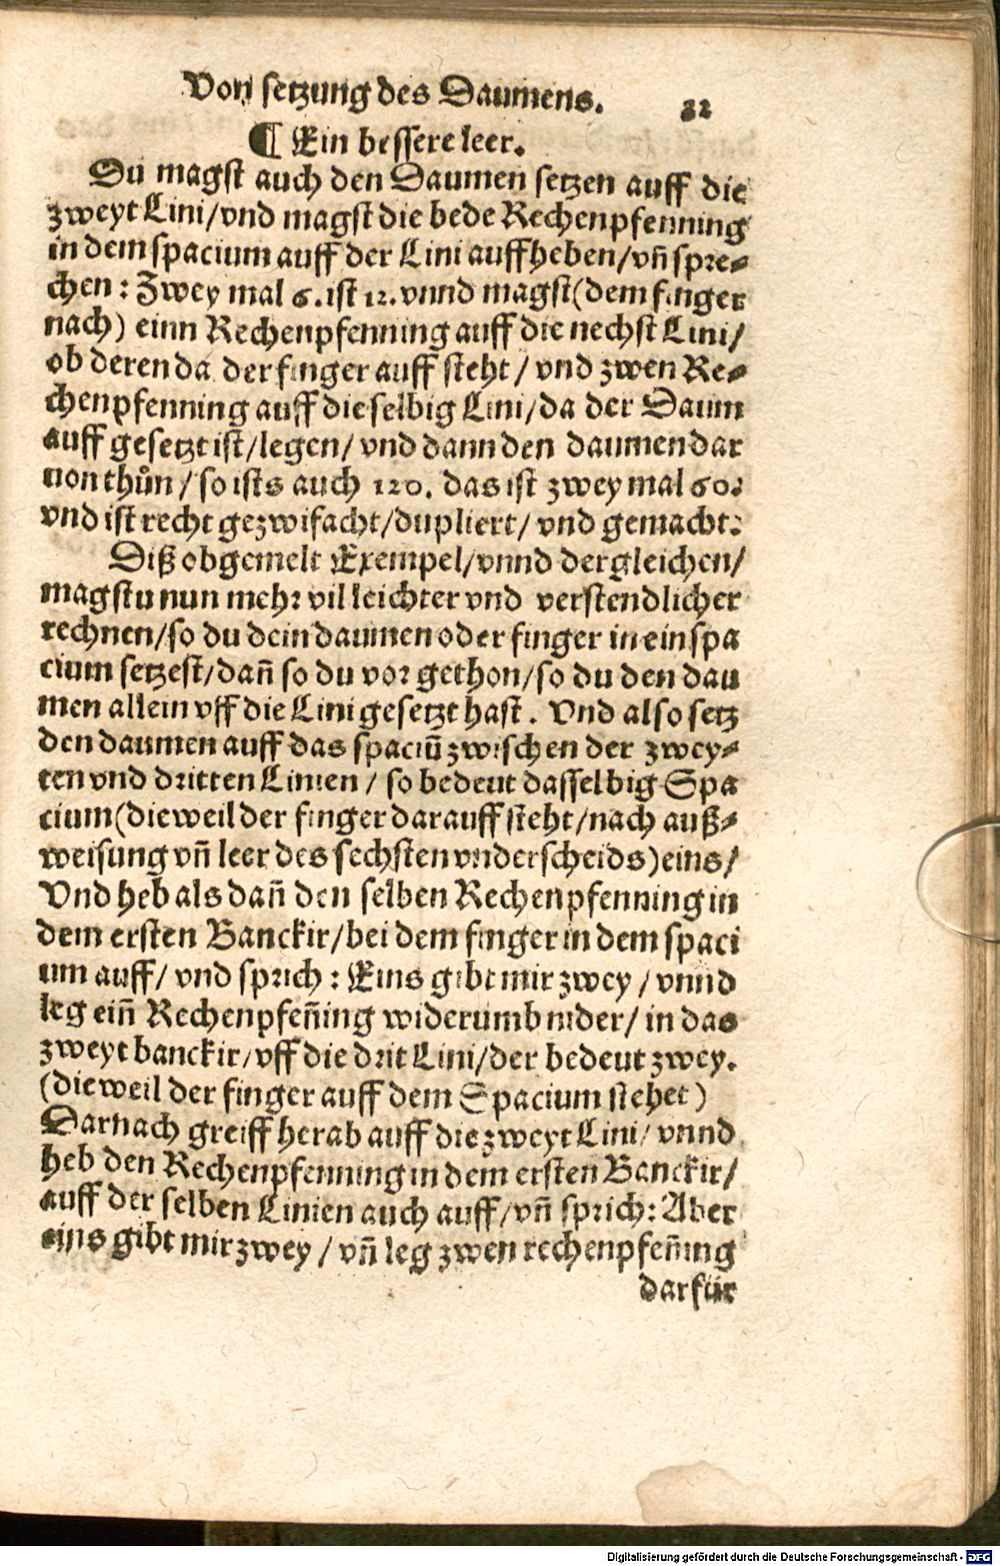 Von setzung des Daumens. 32
¶ Ein bessere leer.
Du magst auch den Daumen setzen auff die
zweyt Lini/vnd magst die bede Rechenpfenning
in dem spacium auff der Lini auffheben/vn̄ spre-
chen: Zwey mal 6. ist 12. vnnd magst (dem finger
nach) einn Rechenpfenning auff die nechst Lini/
ob deren da der finger auff steht/vnd zwen Re-
chenpfenning auff dieselbig Lini/da der Daum
auff gesetzt ist/legen/vnd dann den daumen dar
uon thůn/so ists auch 120. das ist zwey mal 60.
vnd ist recht gezwifacht/dupliert/vnd gemacht.
Diß obgemelt Exempel/vnnd dergleichen/
magstu nun mehr vil leichter vnd verstendlicher
rechnen/so du dein daumen oder finger in ein spa
cium setzest/dan̄ so du vor gethon/so du den dau
men allein vff die Lini gesetzt hast. Vnd also setz
den daumen auff das spaciū zwischen der zwey-
ten vnd dritten Linien/so bedeut dasselbig Spa
cium (dieweil der finger darauff steht/nach auß-
weisung vn̄ leer des sechsten vnderscheids) eins/
Vnd heb als dan̄ den selben Rechenpfenning in
dem ersten Banckir/bei dem finger in dem spaci
um auff/vnd sprich: Eins gibt mir zwey/vnnd
leg ein̄ Rechenpfen̄ing widerumb nider/in das
zweyt banckir/vff die drit Lini/der bedeut zwey.
(dieweil der finger auff dem Spacium stehet)
Darnach greiff herab auff die zweyt Lini/vnnd
heb den Rechenpfenning in dem ersten Banckir/
auff der selben Linien auch auff/vn̄ sprich: Aber
eins gibt mir zwey/vn̄ leg zwen rechenpfen̄ing
darfür
Digitalisierung gefördert durch die Deutsche Forschungsgemeinschaft - DFG